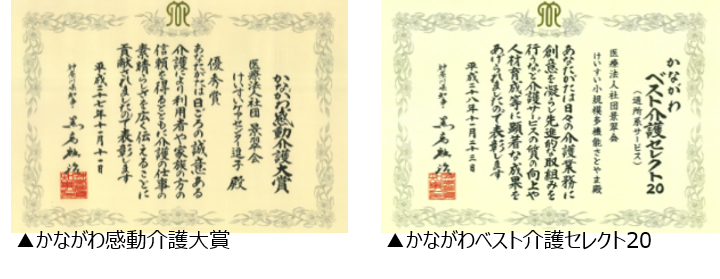 かながわ感動介護大賞
優秀賞
医療法人社団 景翠会
けいすいケアセンター逗子 殿
あなたがたは日ごろの誠意ある
介護により利用者や家族の方の
信頼を得るとともに介護の仕事の
素晴らしさを広く伝えることに
貢献されましたので表彰します
平成二十七年十一月十一日
神奈川県知事 黒岩祐治
▲かながわ感動介護大賞
かながわ
ベスト介護セレクト20
(通所系サービス)
医療法人社団景翠会
けいすい小規模多機能さとやま殿
あなたがたは日々の介護業務に
創意を凝らし先進的な取組みを
行うなど介護サービスの質の向上や
人材育成等に顕著な成果を
あげられましたので表彰します
平成二十八年十一月二十三日
神奈川県知事 黒岩祐治
▲かながわベスト介護セレクト20